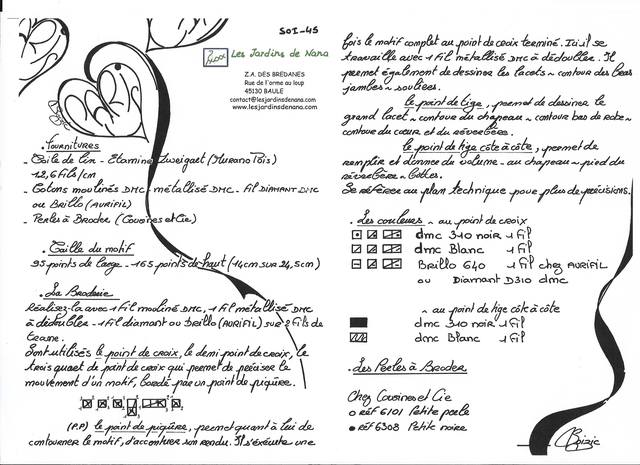 SOI-45
Les Jardins de Nana
Z.A. DES BREDANES
Rue de l'orme au loup
45130 BAULE
contact@lesjardinsdenana.com
www.lesjardinsdenana.com
. Fournitures
- Toile de lin - Etamine Zweigart (Murano Pois)
12,6 fils/cm
- Cotons moulinés DMC - métallisé DMC - Fil DIAMANT DMC
ou BRILLO (AURIFIL)
- Perles à Broder (Cousines et Cie)
. Taille du motif
95 points de large - 165 points de haut (14cm sur 24,5cm)
. La Broderie
Réalisez-la avec 1 fil mouliné DMC, 1 fil métallisé DMC
à dédoubler - 1 fil diamant ou Brillo (AURIFIL) sur 2 fils de
trame.
Sont utilisés le point de croix, le demi-point de croix, le
trois quart de point de croix qui permet de préciser le
mouvement d'un motif, bordé par un point de piqûre.
(P.P) le point de piqûre, permet quant à lui de
contourner le motif, d'accentuer son rendu. Il s'exécute une
fois le motif complet au point de croix terminé. Ici il se
travaille avec 1 fil métallisé DMC à dédoubler. Il
permet également de dessiner les lacets ~ contour des bras
jambes ~ souliers.
le point de tige, permet de dessiner le
grand lacet ~ contour du chapeau ~ contour bas de robe ~
contour du cœur et du réverbère.
le point de tige côte à côte, permet de
remplir et donner du volume - au chapeau ~ pied du
réverbère ~ bottes.
Se référer au plan technique pour plus de précisions.
. Les couleurs ~ au point de croix
dmc 310 noir 1 fil
dmc Blanc 1 fil
Brillo 640 1 fil chez AURIFIL
ou Diamant D310 dmc
~ au point de tige côte à côte
dmc 310 noir 1 fil
dmc Blanc 1 fil
. Les Perles à Broder
Chez Cousines et Cie
o RÉF 6101 Petite perle
• RÉF 6308 Petite noire